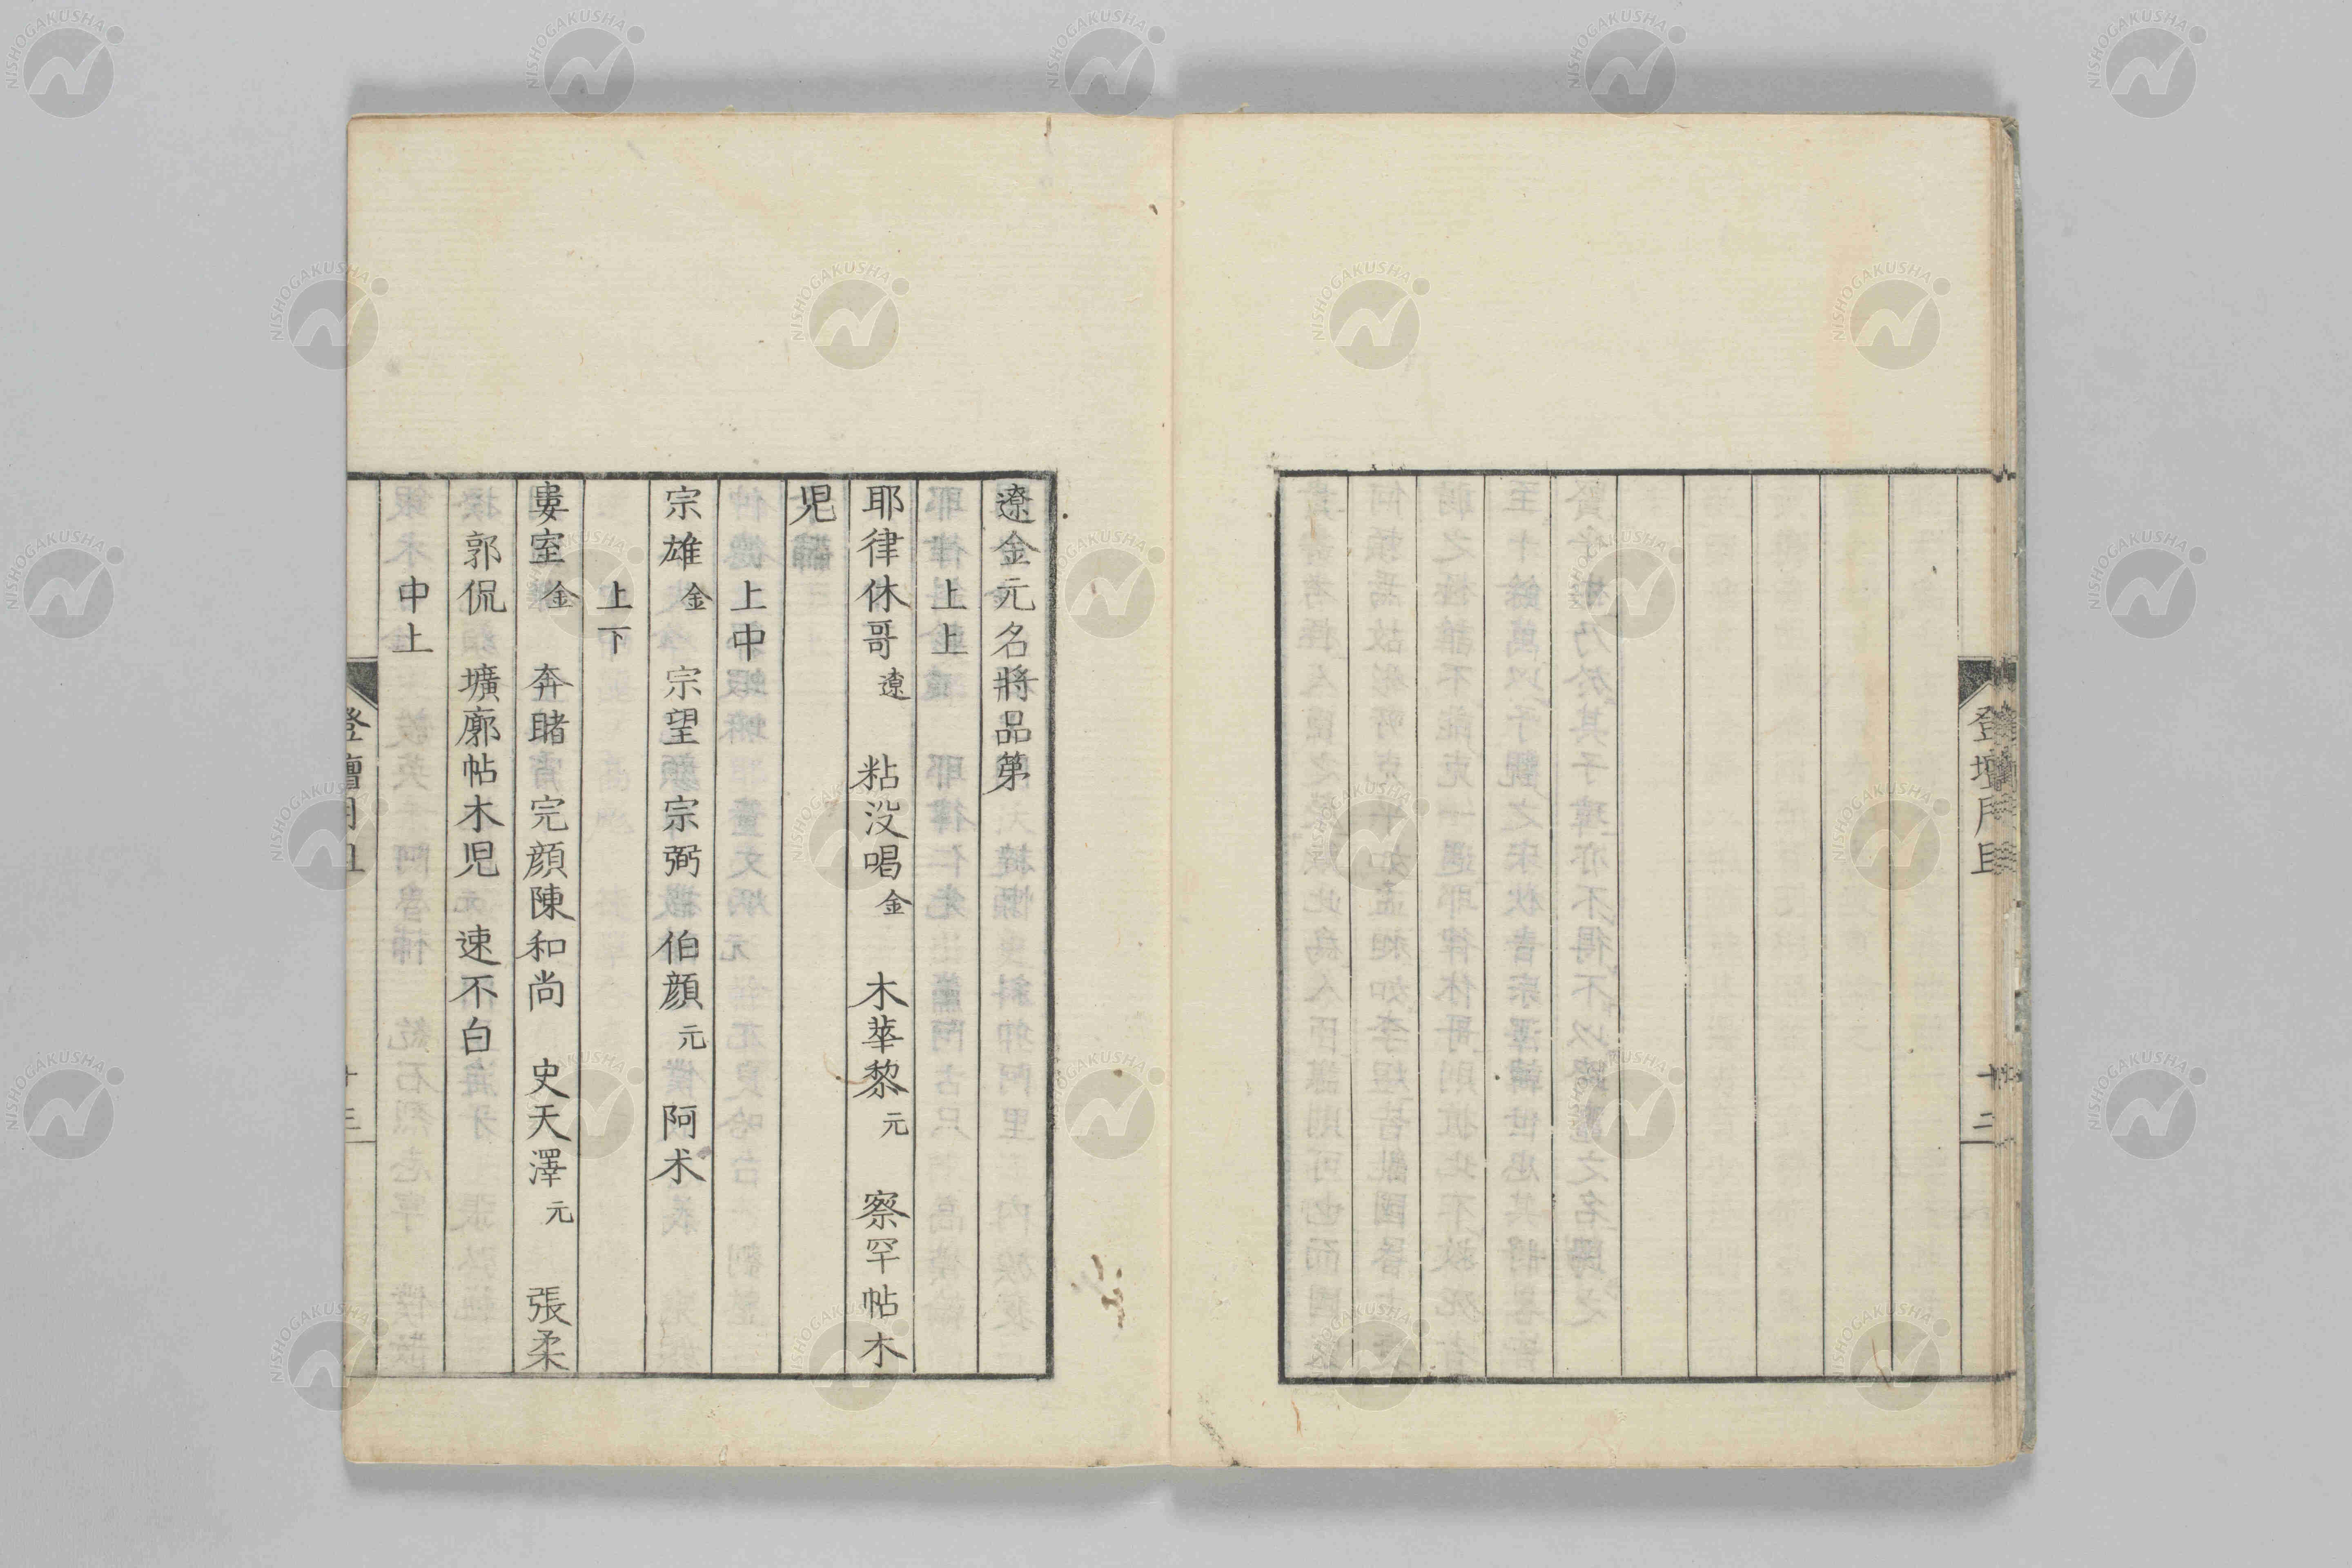 登壇月旦
十二
遼金元名將品第
上上
耶律休哥 遼 粘没喝 金 木華黎 元 察罕帖木
児
上中
宗雄 金 宗望 宗弼 伯顔 元 阿术
上下
婁室 金 奔睹 完顔陳和尚 史天澤 元 張柔
郭侃 壙廓帖木児 速不白
中上
登壇月旦
十三
NISHOGAKUSHA